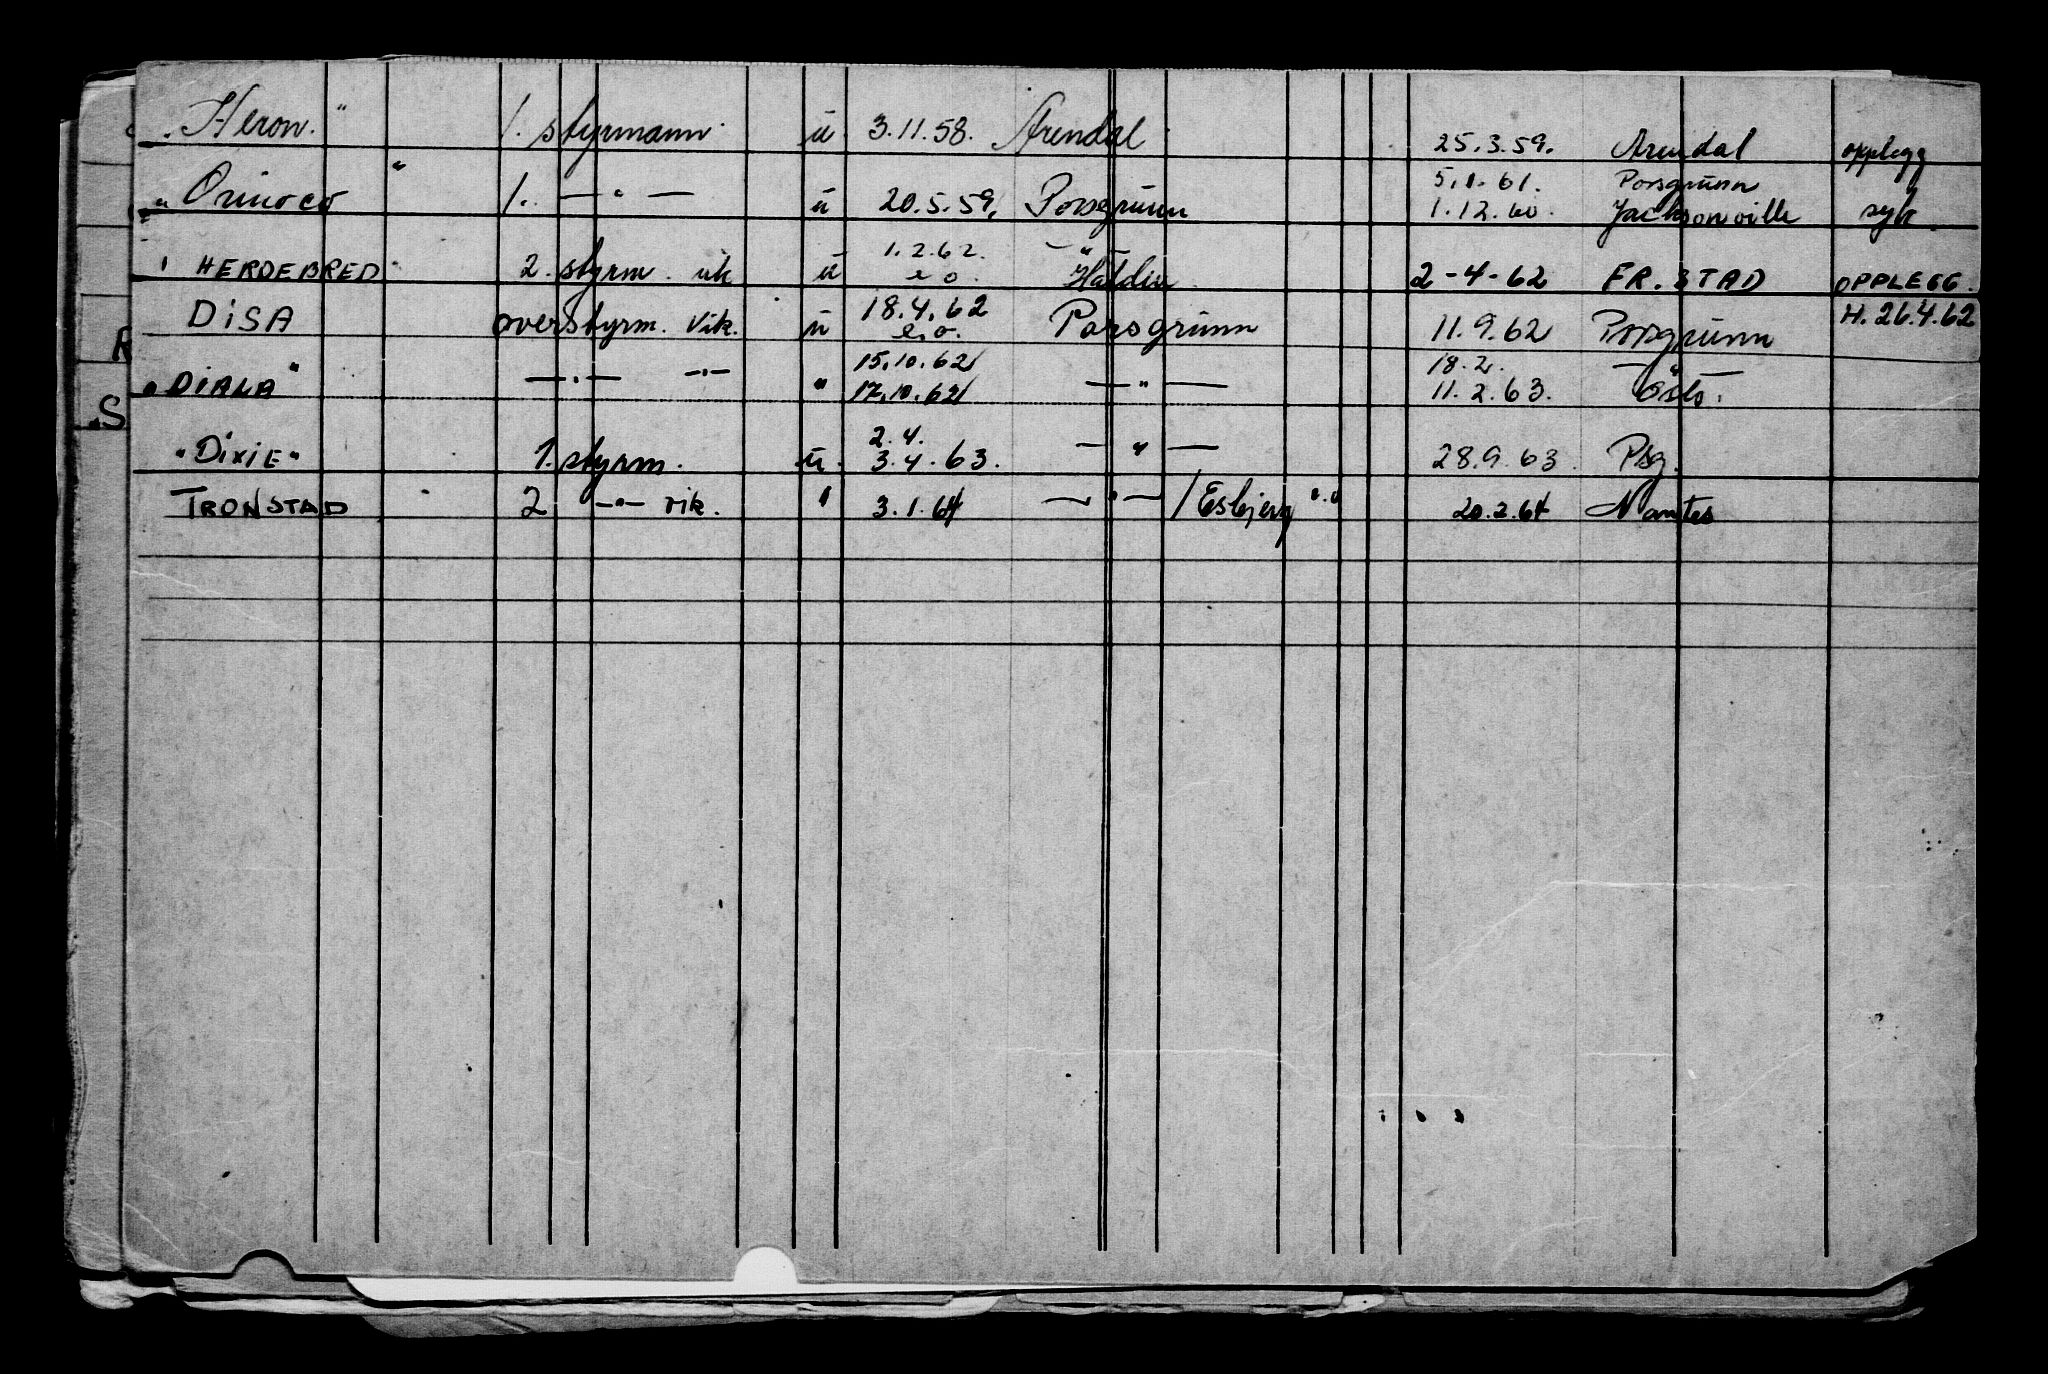 "Heron." 1. styrmann. u 3.11.58. Arendal. 25.3.59. Arendal opplegg
5.1.61. Porsgrunn
"Orinoco" 1. — " — u 20.5.59. Porsgrunn 1.12.60. Jacksonville syk
1.2.62. — " —
"HERDEBRED" 2. styrm. vik u e o. Halden 2-4-62 FR.STAD OPPLEGG.
DISA overstyrm. vik. u 18.4.62 Porsgrunn 11.9.62 Porsgrunn H. 26.4.62
e.o.
15.10.62 18.2. — " —
"DIALA" — " — — " — " 17.10.62 — " — 11.2.63. Oslo.
2.4.
"DIXIE" 1. styrm. u. 3.4.63. — " — 28.9.63. Psg.
TRONSTAD 2 — " — vik. " 3.1.64 — " — / Esbjerg "." 20.2.64 Nantes
R
S